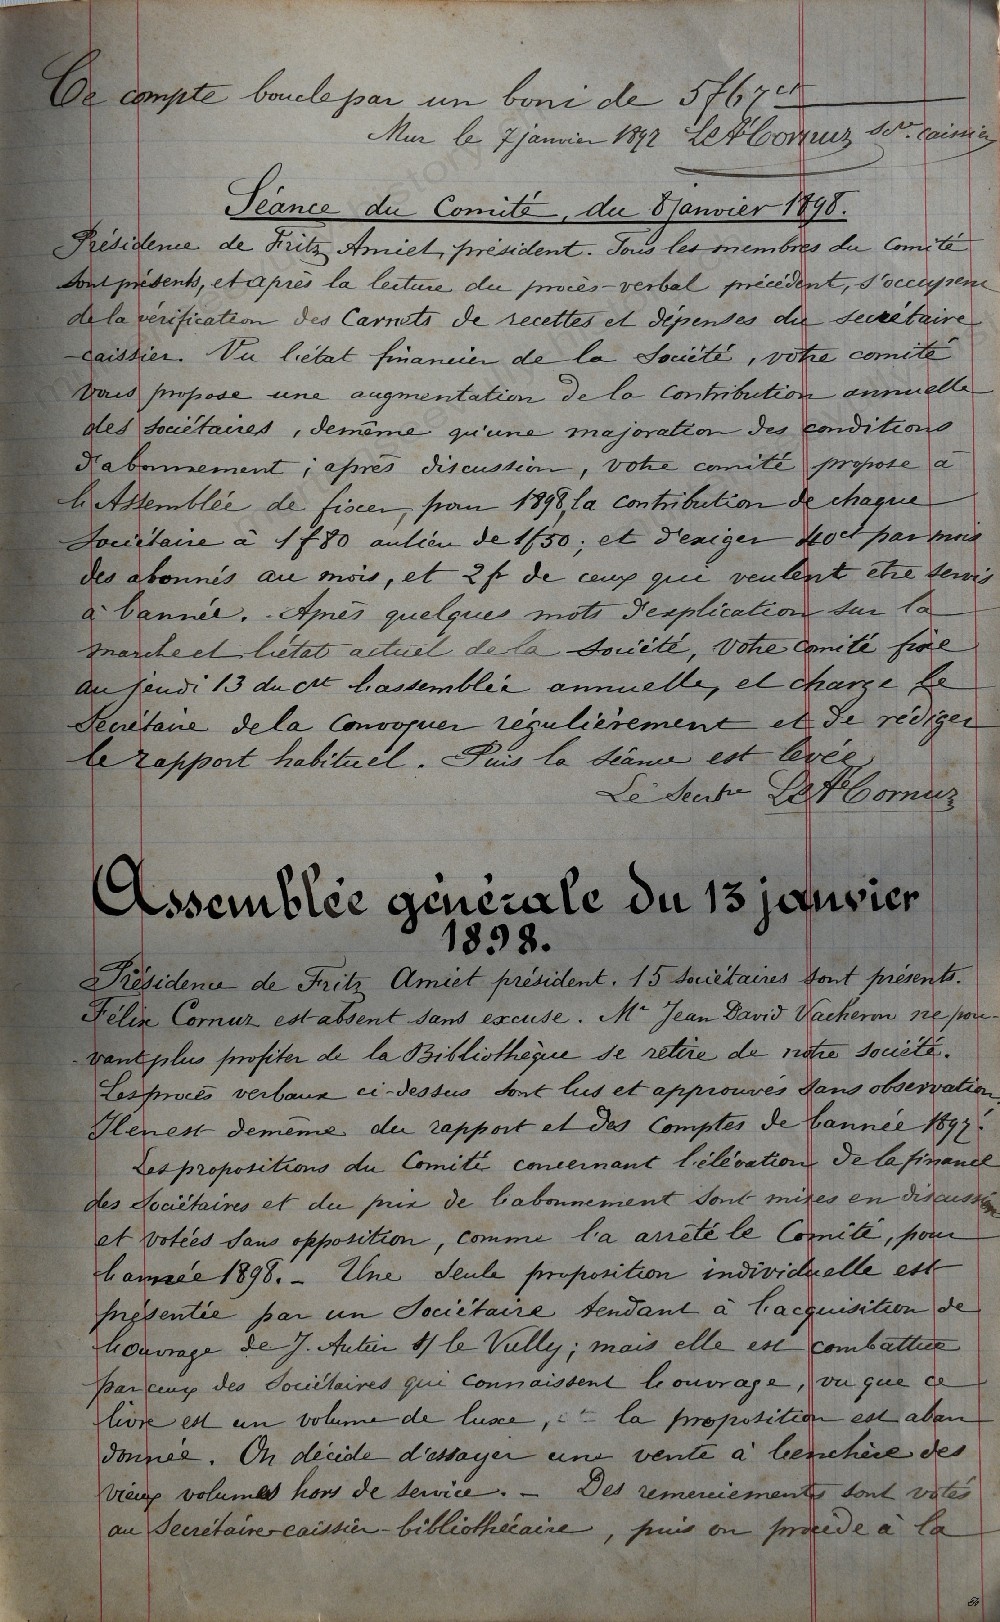 Ce compte boucle par un boni de 5f67ct
Mur le 7 janvier 1897 Ls Ate Cornuz Scre. caissier
Séance du Comité, du 8 janvier 1898.
Présidence de Fritz Amiet, président. Tous les membres du Comité
sont présents, et après la lecture du procès-verbal précédent, s'occupent
de la vérification des Carnets de recettes et dépenses du secrétaire
-caissier. Vu l'état financier de la Société, votre comité
vous propose une augmentation de la contribution annuelle
des sociétaires, demême qu'une majoration des conditions
d'abonnement; après discussion, votre comité propose à
l'Assemblée de fixer, pour 1898, la contribution de chaque
Sociétaire à 1f80 aulieu de 1f50; et d'exiger 40ct par mois
des abonnés au mois, et 2fr de ceux qui veulent être servis
à l'année. - Après quelques mots d'explication sur la
marche et l'état actuel de la Société, votre comité fixe
au jeudi 13 du ct l'assemblée annuelle, et charge le
Secrétaire de la convoquer régulièrement et de rédiger
le rapport habituel. Puis la séance est levée
Le Secrtre Ls Ate Cornuz
Assemblée générale du 13 janvier
1898.
Présidence de Fritz Amiet président. 15 sociétaires sont présents.
Félix Cornuz est absent sans excuse. Mr Jean David Vacheron ne pou-
-vant plus profiter de la Bibliothèque se retire de notre société.
Les procès verbaux ci-dessus sont lus et approuvés sans observation.
Il en est demême du rapport et des Comptes de l'année 1897.
Les propositions du Comité concernant l'élévation de la finance
des Sociétaires et du prix de l'abonnement sont mises en discussion
et votées sans opposition, comme l'a arrêté le Comité, pour
l'année 1898. - Une seule proposition individuelle est
présentée par un Sociétaire tendant à l'acquisition de
l'ouvrage de J. Autier s/ le Vully; mais elle est combattue
par ceux des Sociétaires qui connaissent l'ouvrage, vu que ce
livre est un volume de luxe, et la proposition est aban
donnée. On décide d'essayer une vente à l'enchère des
vieux volumes hors de service. - Des remerciements sont votés
au Secrétaire-caissier-bibliothécaire, puis on procède à la